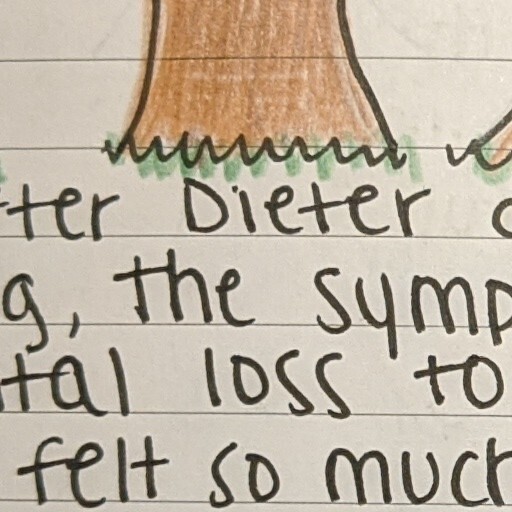 ter Dieter
g, the symp
tal loss to
felt so much